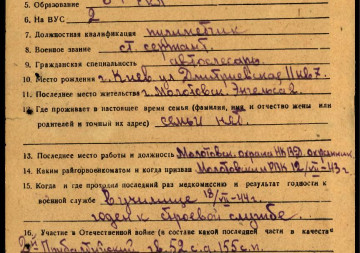 5. Образование
6. На ВУС 2
7. Должностная квалификация пулиметчик
8. Военное звание ст. сержант.
9. Гражданская специальность автослесарь
10. Место рождения г. Киев ул Дмитриевская
11. Последнее место жительства г. Молотовск. Энгельса 8.
12. Где проживает в настоящее время семья (фамилия, имя и отчество жены или
родителей и точный их адрес) семьи нет.
13. Последнее место работы и должность Молотовск. охрана НКВД охранник
14. Каким райгорвоенкоматом и когда призван Молотовским РВК 12/VII-43 г.
15. Когда и где проходил последний раз медкомиссию и результат годности к
военной службе В училище 13/VII-44 г.
годен к строевой службе.
16. Участие в Отечественной войне (в составе какой последней части в качестве
Прибалтийский 52 с.д. 155 с.п.